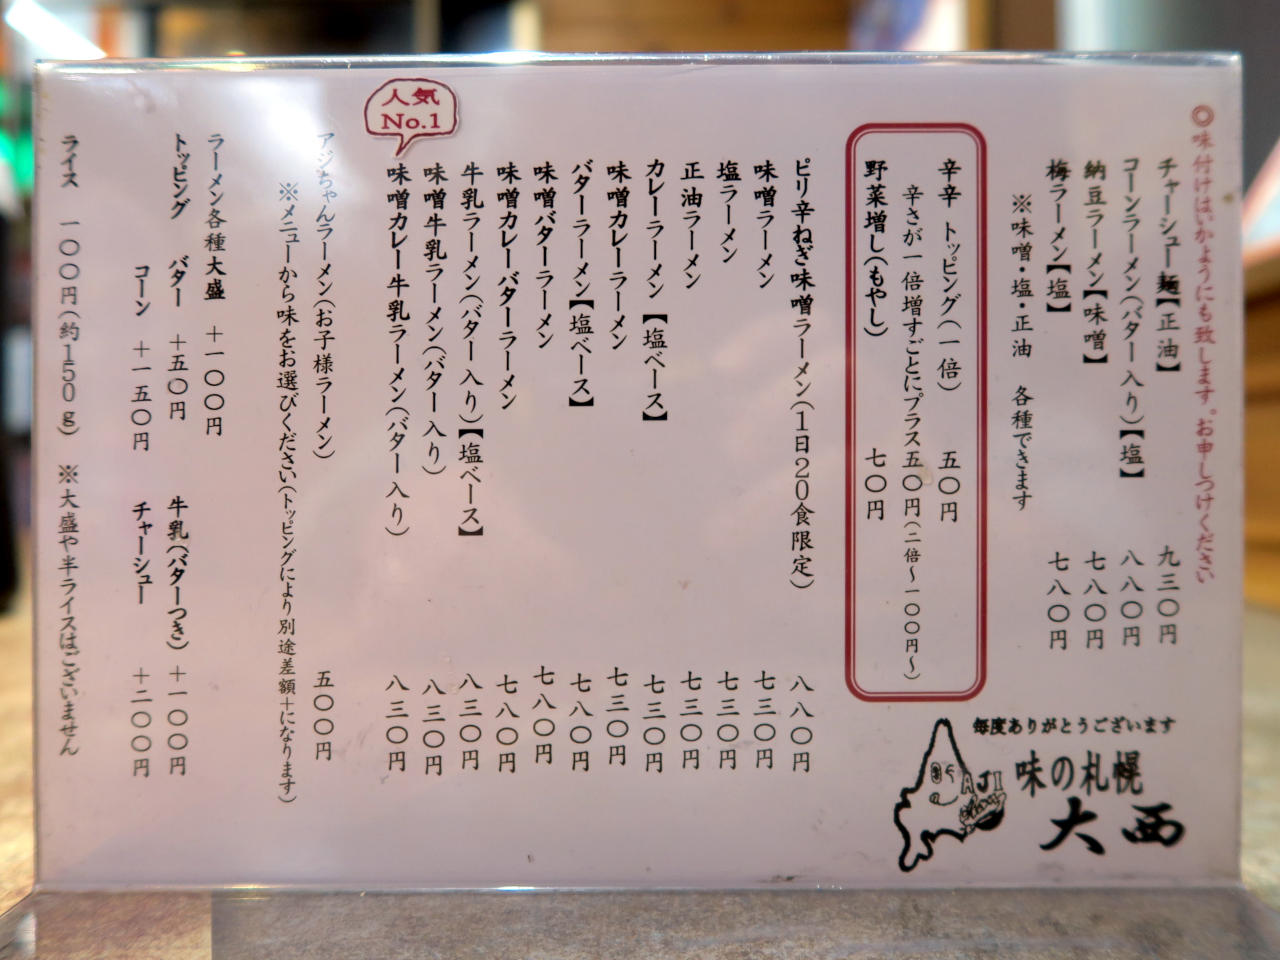 ◎味付けはいかようにも致します。お申しつけください
チャーシュー麺【正油】 九三〇円
コーンラーメン(バター入り)【塩】 八八〇円
納豆ラーメン【味噌】 七八〇円
梅ラーメン【塩】 七八〇円
※味噌・塩・正油 各種できます
辛辛 トッピング(一倍) 五〇円
辛さが一倍増すごとにプラス五〇円(二倍～一〇〇円～)
野菜増し(もやし) 七〇円
ピリ辛ねぎ味噌ラーメン(1日20食限定) 八八〇円
味噌ラーメン 七三〇円
塩ラーメン 七三〇円
正油ラーメン 七三〇円
カレーラーメン【塩ベース】 七三〇円
味噌カレーラーメン 七三〇円
バターラーメン【塩ベース】 七八〇円
味噌バターラーメン 七八〇円
味噌カレーバターラーメン 七八〇円
牛乳ラーメン(バター入り)【塩ベース】 八三〇円
味噌牛乳ラーメン(バター入り) 八三〇円
人気
No.1
味噌カレー牛乳ラーメン(バター入り) 八三〇円
アジちゃんラーメン(お子様ラーメン) 五〇〇円
※メニューから味をお選びください(トッピングにより別途差額+になります)
ラーメン各種大盛 +一〇〇円
トッピング バター +五〇円 牛乳(バターつき) +一〇〇円
コーン +一五〇円 チャーシュー +二〇〇円
ライス 一〇〇円(約150g) ※大盛や半ライスはございません
毎度ありがとうございます
味の札幌
大西
AJI